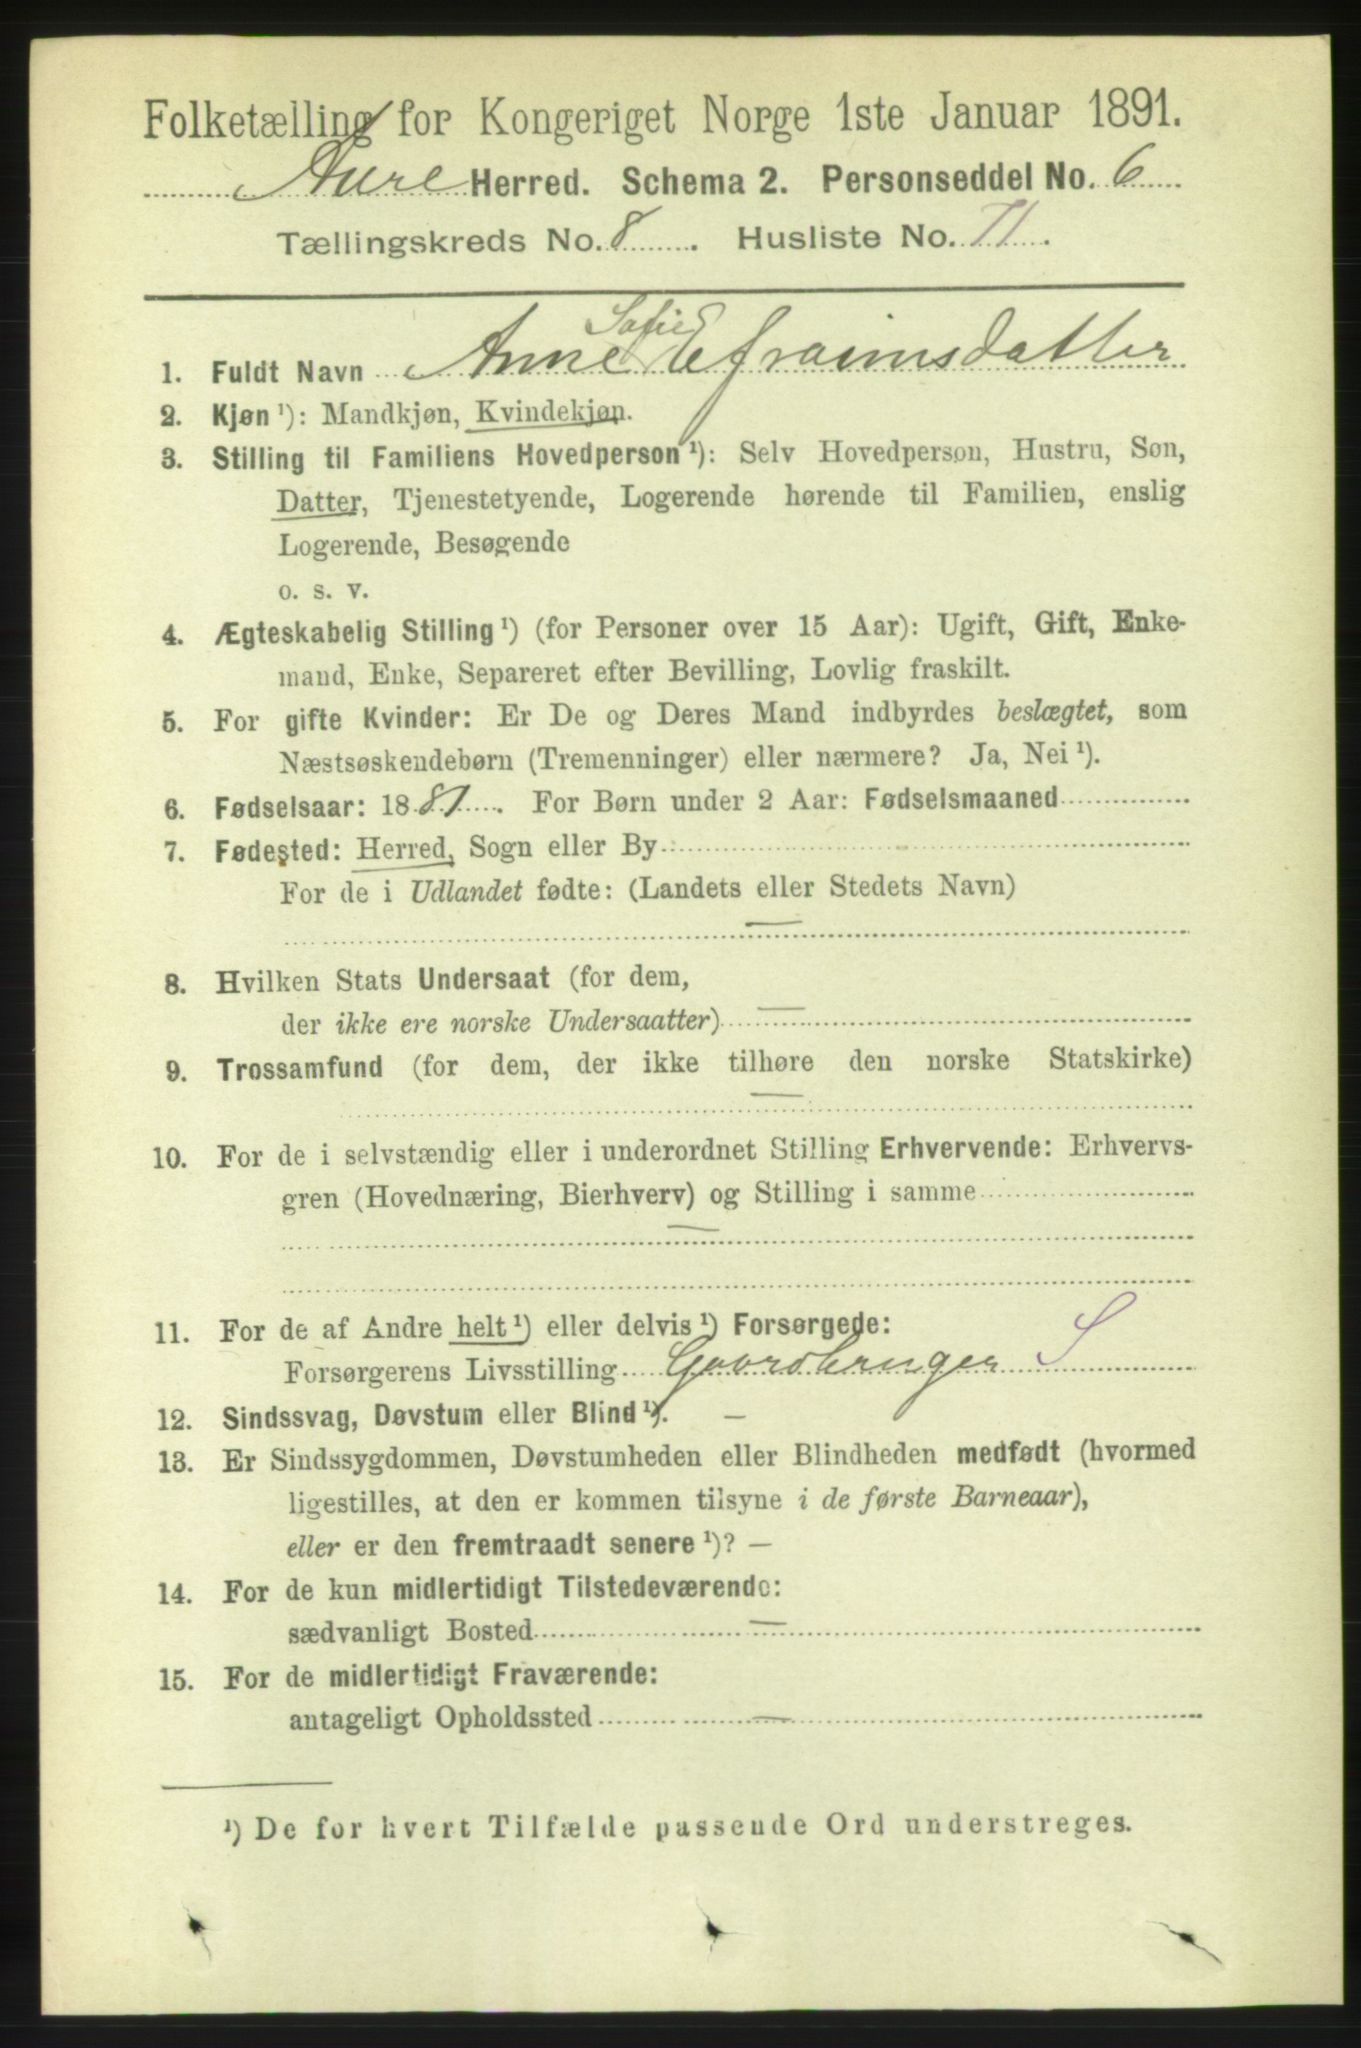 Folketælling for Kongeriget Norge 1ste Januar 1891.
Aure Herred. Schema 2. Personseddel No. 6
Tællingskreds No. 8. Husliste No. 71.
Sofie
1. Fuldt Navn Anne Efraimsdatter
2. Kjøn ¹): Mandkjøn, Kvindekjøn.
3. Stilling til Familiens Hovedperson ¹): Selv Hovedperson, Hustru, Søn,
Datter, Tjenestetyende, Logerende hørende til Familien, enslig
Logerende, Besøgende
o. s. v.
4. Ægteskabelig Stilling ¹) (for Personer over 15 Aar): Ugift, Gift, Enke-
mand, Enke, Separeret efter Bevilling, Lovlig fraskilt.
5. For gifte Kvinder: Er De og Deres Mand indbyrdes beslægtet, som
Næstsøskendebørn (Tremenninger) eller nærmere? Ja, Nei ¹).
6. Fødselsaar: 1881. For Børn under 2 Aar: Fødselsmaaned
7. Fødested: Herred, Sogn eller By
For de i Udlandet fødte: (Landets eller Stedets Navn)
—
8. Hvilken Stats Undersaat (for dem,
der ikke ere norske Undersaatter) —
9. Trossamfund (for dem, der ikke tilhøre den norske Statskirke)
—
10. For de i selvstændig eller i underordnet Stilling Erhvervende: Erhvervs-
gren (Hovednæring, Bierhverv) og Stilling i samme
—
11. For de af Andre helt ¹) eller delvis ¹) Forsørgede:
Forsørgerens Livsstilling Gaardbruger S
12. Sindssvag, Døvstum eller Blind ¹). —
13. Er Sindssygdommen, Døvstumheden eller Blindheden medfødt (hvormed
ligestilles, at den er kommen tilsyne i de første Barneaar),
eller er den fremtraadt senere ¹)? —
14. For de kun midlertidigt Tilstedeværende:
sædvanligt Bosted —
15. For de midlertidigt Fraværende:
antageligt Opholdssted —
¹) De for hvert Tilfælde passende Ord understreges.